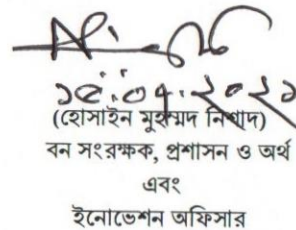 ১৫.০৭.২০২১
(হোসাইন মুহম্মদ নিশাদ)
বন সংরক্ষক, প্রশাসন ও অর্থ
এবং
ইনোভেশন অফিসার